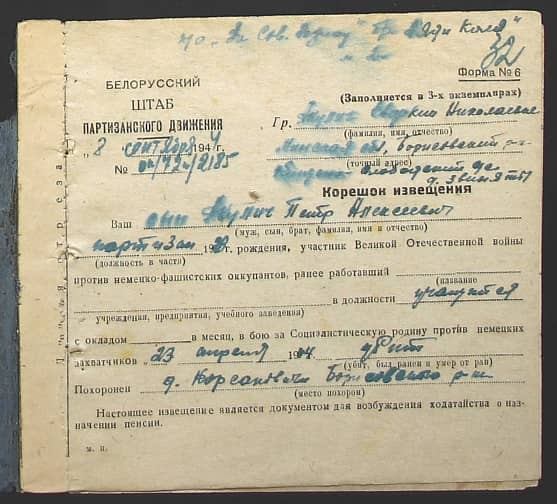 32
Форма № 6
БЕЛОРУССКИЙ
ШТАБ
ПАРТИЗАНСКОГО ДВИЖЕНИЯ
(Заполняется в 3-х экземплярах)
Гр. Николаевне
(фамилия, имя, отчество)
" 8 сентября 1944 г.
Минская обл, Борисовский р-н
(точный адрес)
№ 04/724/2185
д. Звиняты
Корешок извещения
Ваш сын Петр Алексеевич
(муж, сын, брат, фамилия, имя и отчество)
партизан 19 г. рождения, участник Великой Отечественной войны
(должность в части)
против немецко-фашистских оккупантов, ранее работавший
(название
в должности учащийся
учреждения, предприятия, учебного заведения)
с окладом в месяц, в бою за Социалистическую родину против немецких
захватчиков " 23 апреля 1944 убит
(убит, был ранен и умер от ран)
Похоронен д. Корсаковичи Борисовского р-на
(место похорон)
Настоящее извещение является документом для возбуждения ходатайства о наз-
начении пенсии.
м. п.
Линия отреза